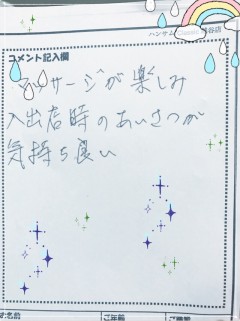 ハンサム
コメント記入欄
サージが楽しみ
入出店時のあいさつが
気持ち良い
お名前
ご年齢
ご職業